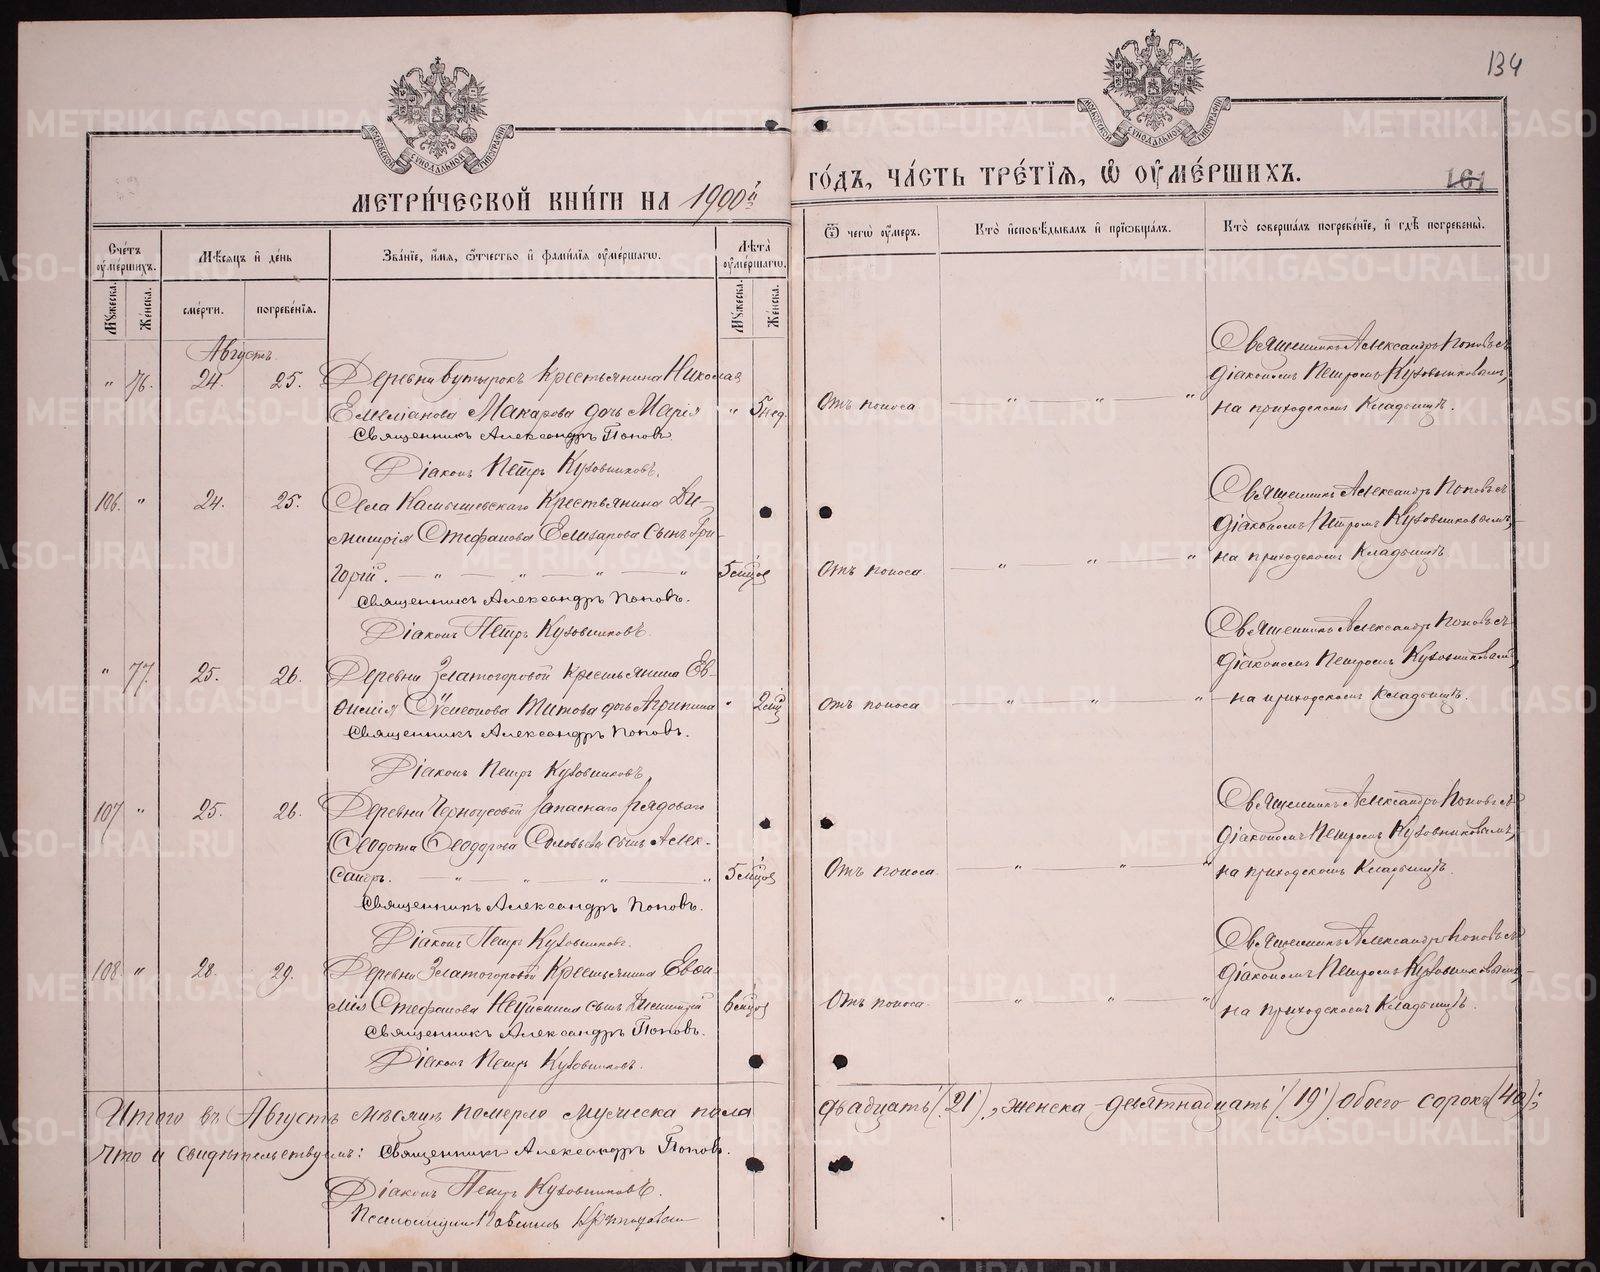 134
МЕТРИ́ЧЕСКОЙ КНИ́ГИ НА 1900й
ГО́ДЪ, ЧА́СТЬ ТРЕ́ТЇѦ, Ѡ҆ ОУ҆МЕ́РШИХЪ.
161
Сче́тъ оу҆ме́ршихъ.
Мꙋ́жеска.
Же́нска.
Мѣ́сѧцъ и҆ де́нь
сме́рти.
погребе́нїѧ.
Зва́нїе, и҆́мѧ, ѻ҆́тчество и҆ фамі́лїѧ оу҆ме́ршагѡ.
Лѣ́та̀ оу҆ме́ршагѡ.
Мꙋ́жеска.
Же́нска.
Ѿ чегѡ̀ оу҆́меръ.
Кто̀ и҆сповѣ́дывалъ и҆ прїѡбща́лъ.
Кто̀ соверша́лъ погребе́нїе, и҆ гдѣ̀ погребены̀.
Августъ.
" 76. 24. 25. Деревни Бутырокъ крестьянина Николая
Емеліанова Макарова дочь Марія " 5 нед.
Священникъ Александръ Поповъ.
Діаконъ Петръ Кузовниковъ.
Отъ поноса " " "
Священникъ Александръ Поповъ съ
діакономъ Петромъ Кузовниковымъ,
на приходскомъ кладбищѣ.
106. " 24. 25. Села Камышевскаго крестьянина Ди-
митрія Стефанова Елизарова сынъ Гри-
горій. " " " " 5 мцов
Священникъ Александръ Поповъ.
Діаконъ Петръ Кузовниковъ.
Отъ поноса " " "
Священникъ Александръ Поповъ съ
діакономъ Петромъ Кузовниковымъ,
на приходскомъ кладбищѣ
" 77. 25. 26. Деревни Златогоровой крестьянина Ев-
ѳимія Симеонова Титова дочь Агрипина " 2 мца
Священникъ Александръ Поповъ.
Діаконъ Петръ Кузовниковъ
Отъ поноса " " "
Священникъ Александръ Поповъ съ
діакономъ Петромъ Кузовниковымъ,
на приходскомъ кладбищѣ.
107 " 25. 26. Деревни Черноусовой запаснаго рядоваго
Ѳеодота Ѳеодорова Соловьева сынъ Алек-
сандръ. " " " " 5 мцов
Священникъ Александръ Поповъ.
Діаконъ Петръ Кузовниковъ.
Отъ поноса. " " "
Священникъ Александръ Поповъ съ
діакономъ Петромъ Кузовниковымъ,
на приходскомъ кладбищѣ.
108 " 28. 29. Деревни Златогоровой крестьянина Евѳи-
мія Стефанова сынъ Димитрій 6 мцов
Священникъ Александръ Поповъ.
Діаконъ Петръ Кузовниковъ.
Отъ поноса. " " "
Священникъ Александръ Поповъ съ
діакономъ Петромъ Кузовниковымъ,
на приходскомъ кладбищѣ.
Итого въ Августѣ мѣсяцѣ померло мужеска пола двадцать (21), женска девятнадцать (19) обоего сорокъ (40);
что и свидѣтельствуемъ: Священникъ Александръ Поповъ.
Діаконъ Петръ Кузовниковъ.
Псаломщикъ
METRIKI.GASO-URAL.RU